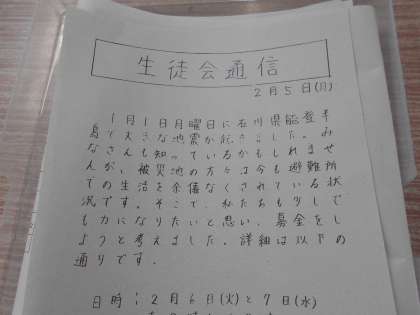 生徒会通信
2月5日(月)
1月1日月曜日に石川県能登半
島で大きな地震が起きました。み
なさんも知っているかもしれませ
んが、被災地の方々は今も避難所
での生活を余儀なくされている状
況です。そこで、私たちも少しで
も力になりたいと思い、募金をし
ようと考えました。詳細は以下の
通りです。
日時:2月6日(火)と7日(水)